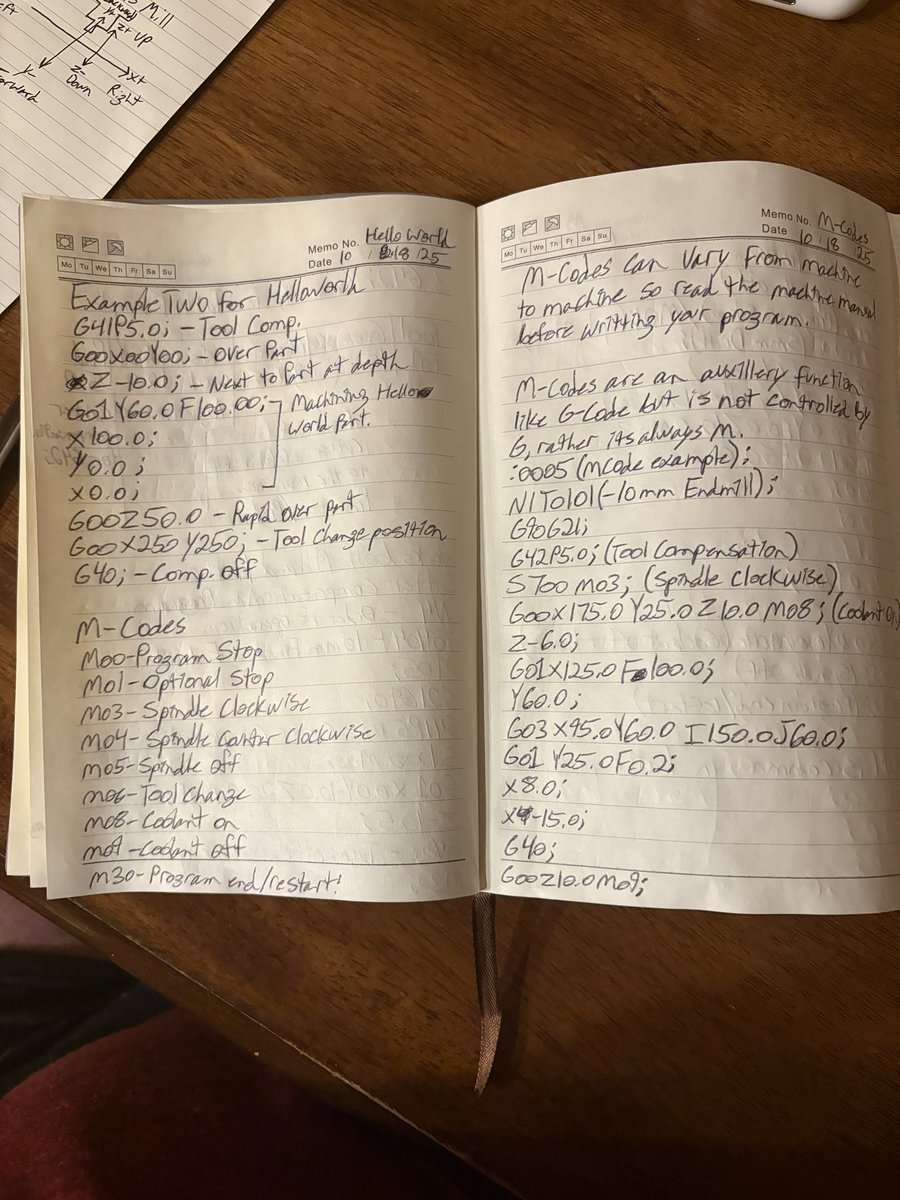 Mill
Z+ UP
Y-
Z-
X+
Forward
Down
Right
Memo No. Hello World
Mo Tu We Th Fr Sa Su
Date 10 / 18 / 25
Example Two for Helloworld
G41P5.0; - Tool Comp.
G00X00Y00; - Over Part
Z-10.0; - Next to Part at depth
G01Y60.0F100.00; - Machining Hello
World Part.
X100.0;
Y0.0;
X0.0;
G00Z50.0 - Rapid over part
G00X250Y250; - Tool Change position
G40; - Comp. off
M-Codes
M00-Program Stop
M01-Optional Stop
M03-Spindle Clockwise
M04-Spindle counter Clockwise
M05-Spindle off
M06-Tool Change
M08-Coolant on
M09-Coolant off
M30-Program end/restart!
Memo No. M-Codes
Mo Tu We Th Fr Sa Su
Date 10 / 18 / 25
M-Codes can vary from machine
to machine so read the machine manual
before writting your program.
M-Codes are an auxillery function
like G-Code but is not controlled by
G, rather its always M.
:0005 (Mcode example);
N1T0101(-10mm Endmill);
G90G21;
G42P5.0; (Tool Compensation)
S700 M03; (Spindle Clockwise)
G00X175.0Y25.0Z10.0M08; (Coolant On)
Z-6.0;
G01X125.0F100.0;
Y60.0;
G03X95.0Y60.0 I150.0J60.0;
G01Y25.0F0.2;
X8.0;
X-15.0;
G40;
G00Z10.0M09;